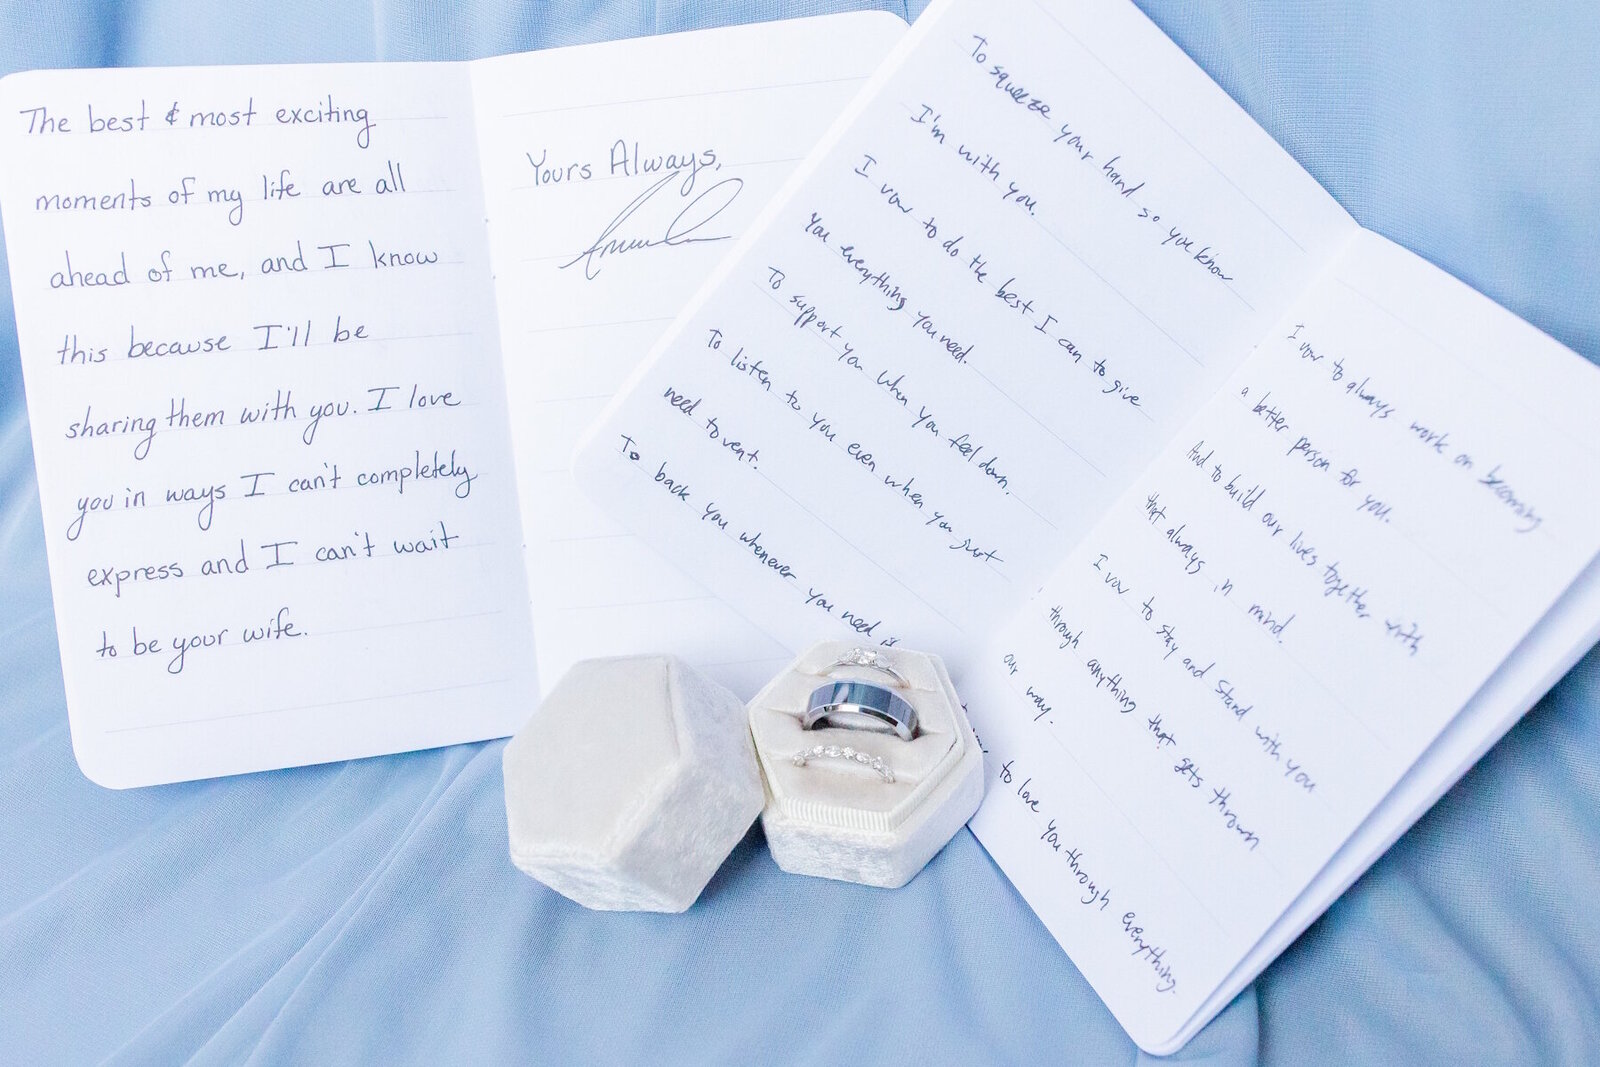 The best & most exciting
moments of my life are all
ahead of me, and I know
this because I'll be
sharing them with you. I love
you in ways I can't completely
express and I can't wait
to be your wife.
Yours Always,
To squeeze your hand so you know
I'm with you.
I vow to do the best I can to give
You everything you need.
To support you when you feel down.
To listen to you even when you just
need to vent.
To back you whenever you need it
I vow to always work on becoming
a better person for you.
And to build our lives together with
that always in mind.
I vow to stay and stand with you
through anything that gets thrown
our way.
to love you through everything.